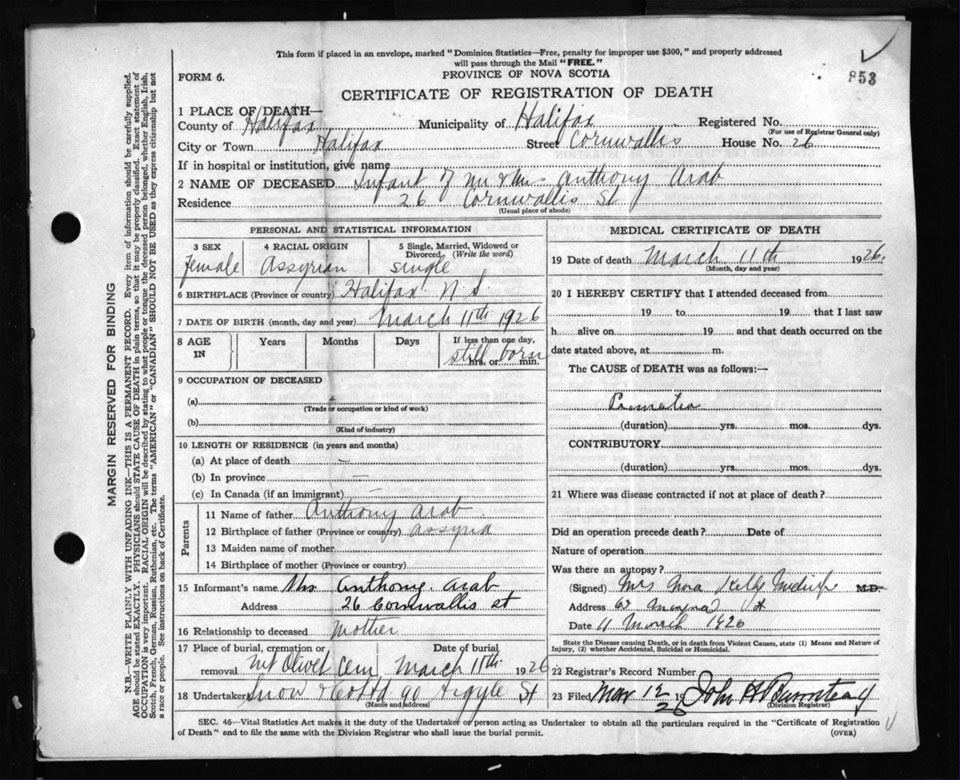 This form if placed in an envelope, marked "Dominion Statistics—Free, penalty for improper use $300," and properly addressed
will pass through the Mail "FREE."
853
FORM 6.
PROVINCE OF NOVA SCOTIA
CERTIFICATE OF REGISTRATION OF DEATH
1 PLACE OF DEATH—
County of Halifax Municipality of Halifax Registered No.
(For use of Registrar General only)
City or Town Halifax Street Cornwallis House No. 26
If in hospital or institution, give name
2 NAME OF DECEASED Infant of Mr & Mrs Anthony Arab
Residence 26 Cornwallis St
(Usual place of abode)
PERSONAL AND STATISTICAL INFORMATION
3 SEX 4 RACIAL ORIGIN 5 Single, Married, Widowed or
Divorced (Write the word)
Female Assyrian single
6 BIRTHPLACE (Province or country) Halifax N.S.
7 DATE OF BIRTH (month, day and year) March 11th 1926
8 AGE IN Years Months Days If less than one day,
still born
hrs. or min.
9 OCCUPATION OF DECEASED
(a)
(Trade or occupation or kind of work)
(b)
(Kind of industry)
10 LENGTH OF RESIDENCE (in years and months)
(a) At place of death —
(b) In province —
(c) In Canada (if an immigrant) —
Parents
11 Name of father Anthony Arab
12 Birthplace of father (Province or country) Assyria
13 Maiden name of mother
14 Birthplace of mother (Province or country)
15 Informant's name Mrs. Anthony Arab
Address 26 Cornwallis st
16 Relationship to deceased Mother
17 Place of burial, cremation or Date of burial
removal Mt Olivet Cem March 11th 1926
18 Undertaker Snow & Co Ltd 90 Argyle St
(Name and address)
MEDICAL CERTIFICATE OF DEATH
19 Date of death March 11th 1926.
(Month, day and year)
20 I HEREBY CERTIFY that I attended deceased from
19 to 19 that I last saw
h alive on 19 and that death occurred on the
date stated above, at m.
The CAUSE of DEATH was as follows:—
(duration) yrs. mos. dys.
CONTRIBUTORY
(duration) yrs. mos. dys.
21 Where was disease contracted if not at place of death?
Did an operation precede death? Date of
Nature of operation
Was there an autopsy?
(Signed) Mrs Nora Kelly Midwife M.D.
Address St
Date 11 March 1926
State the Disease causing Death, or in death from Violent Causes, state (1) Means and Nature of
Injury, (2) whether Accidental, Suicidal or Homicidal.
22 Registrar's Record Number
23 Filed Mar 12 1926 John
(Division Registrar)
SEC. 46—Vital Statistics Act makes it the duty of the Undertaker or person acting as Undertaker to obtain all the particulars required in the "Certificate of Registration
of Death" and to file the same with the Division Registrar who shall issue the burial permit.
(OVER)
MARGIN RESERVED FOR BINDING
N.B.—WRITE PLAINLY WITH UNFADING INK—THIS IS A PERMANENT RECORD. Every item of information should be carefully supplied.
AGE should be stated EXACTLY. PHYSICIANS should STATE CAUSE OF DEATH in plain terms, so that it may be properly classified. Exact statement of
OCCUPATION is very important. RACIAL ORIGIN will be described by stating to what people or tongue the deceased person belonged, whether English, Irish,
Scotch, French, German, Russian, Ruthenian, etc. The terms "AMERICAN" or "CANADIAN" SHOULD NOT BE USED as they express citizenship but not
a race or people. See instructions on back of Certificate.